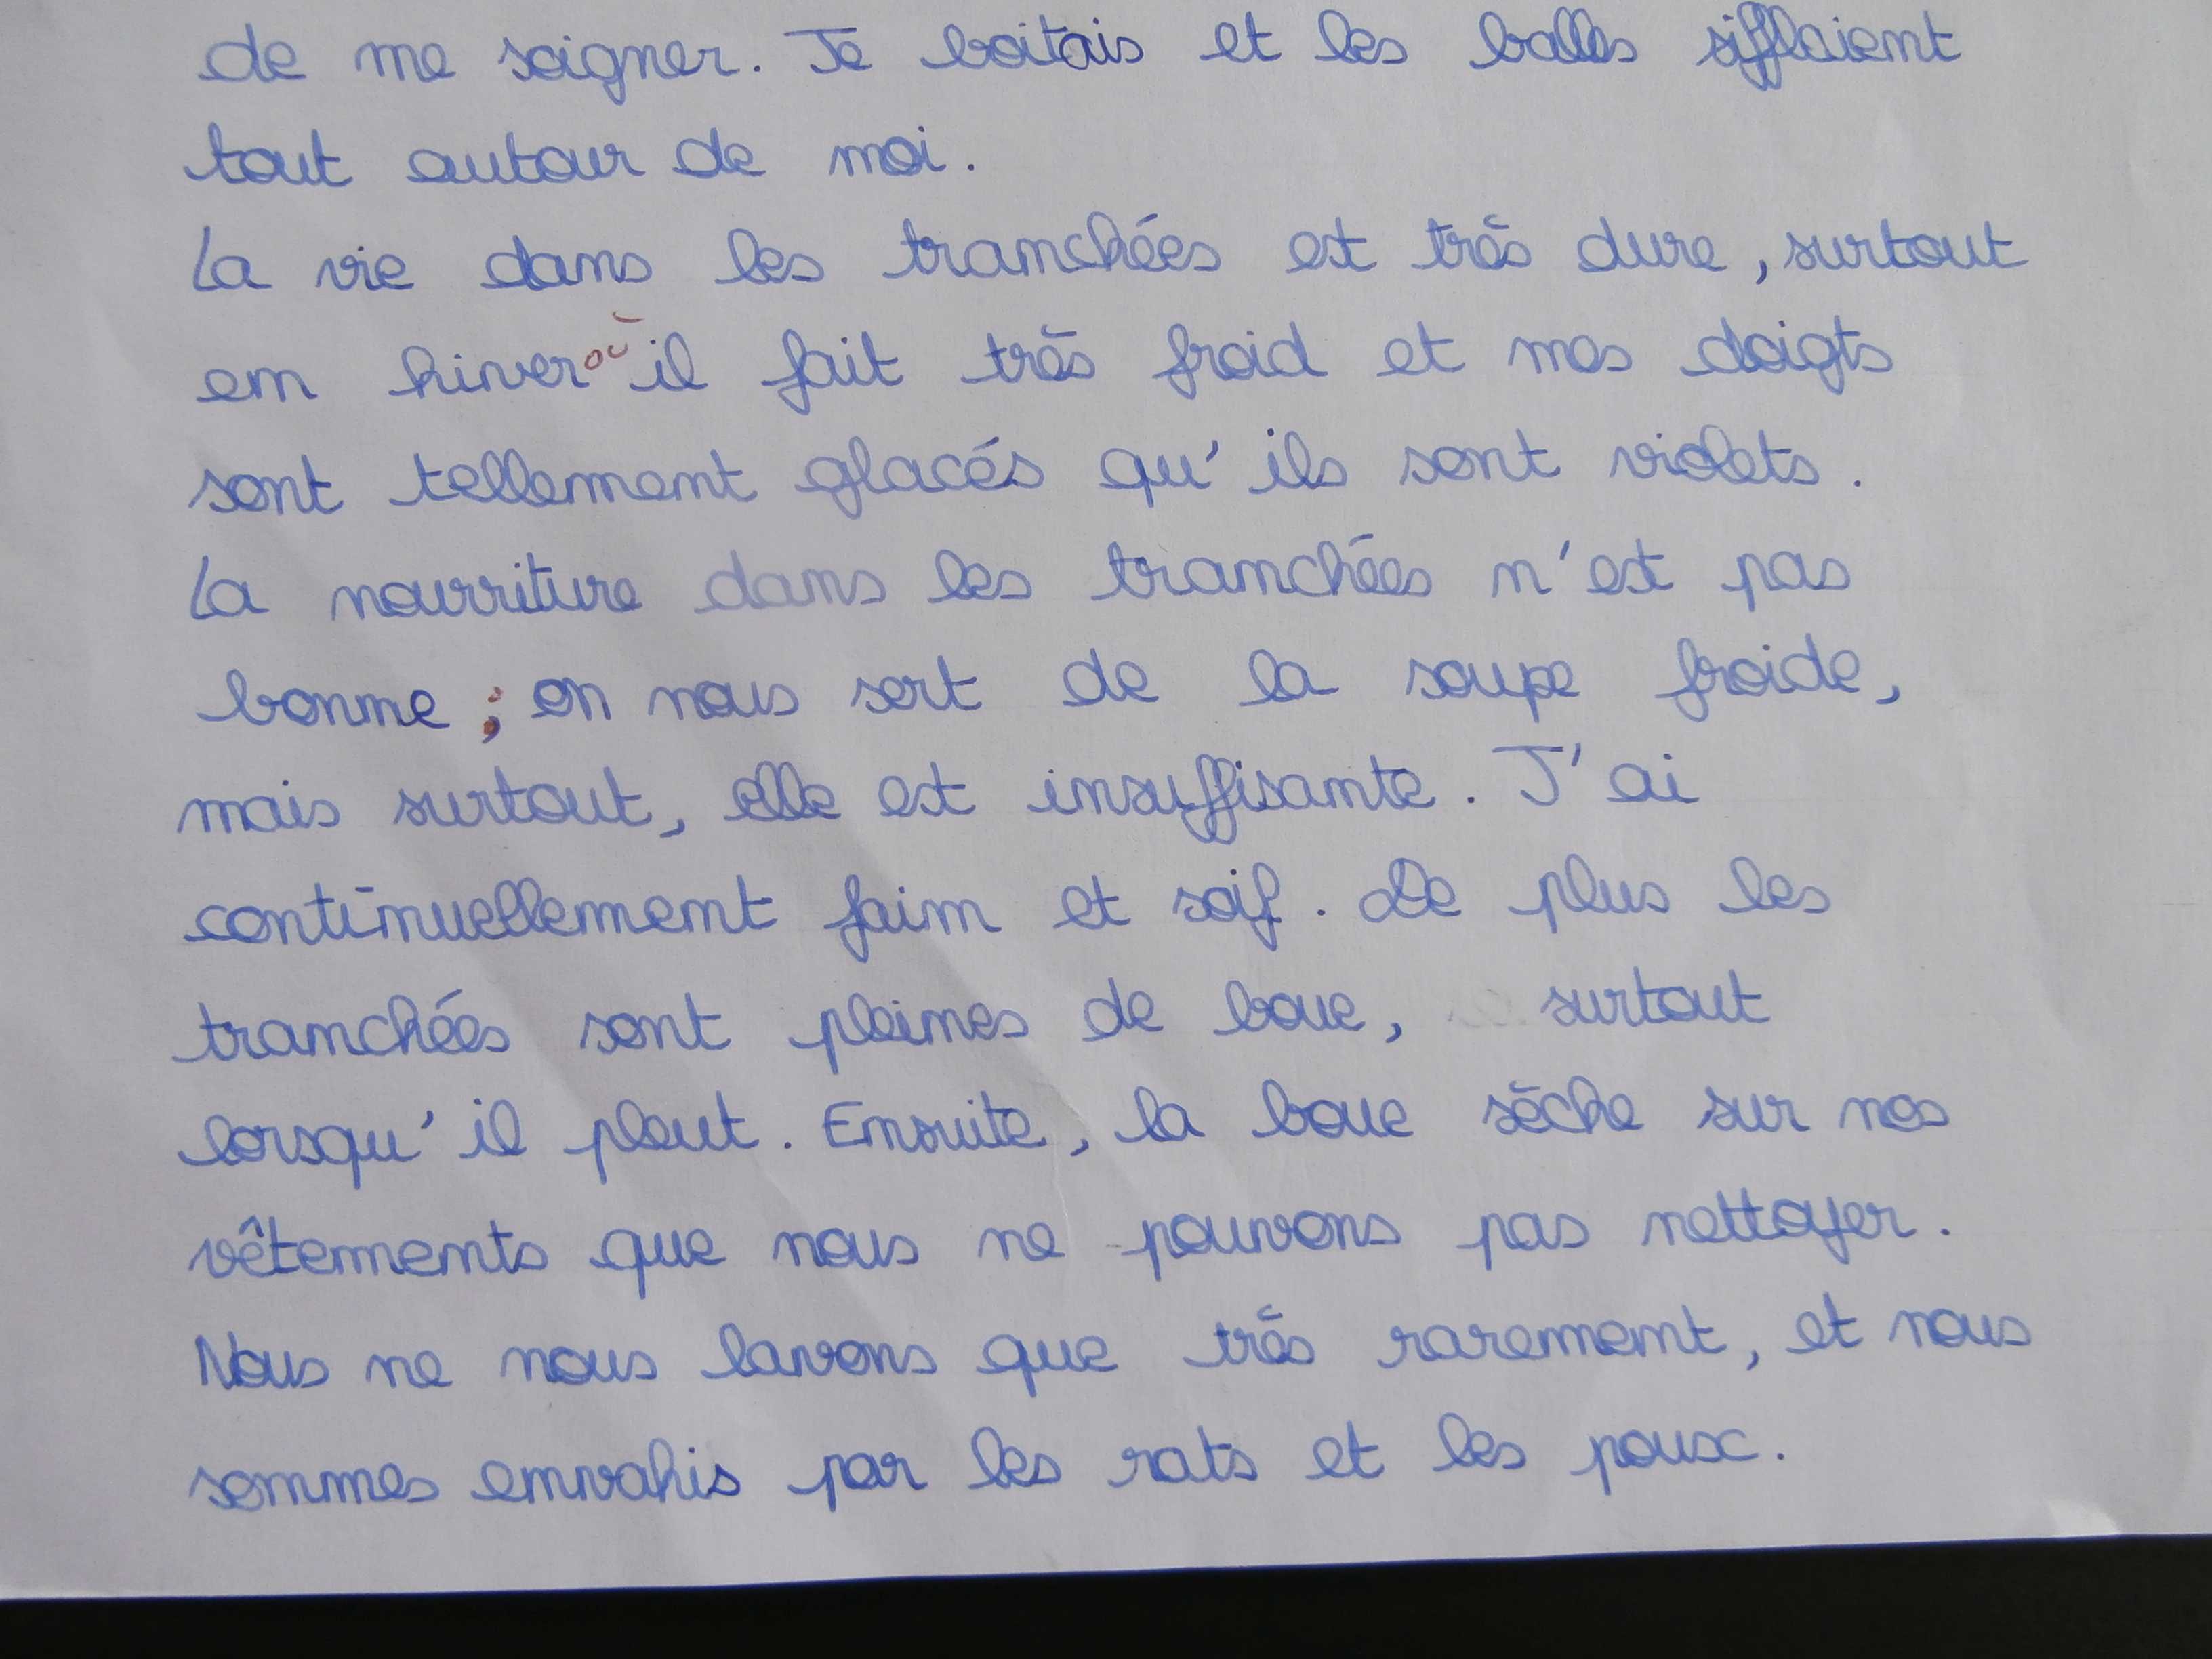 de me soigner. Je boitais et les balles sifflaient
tout autour de moi.
La vie dans les tranchées est très dure, surtout
en hiver où il fait très froid et mes doigts
sont tellement glacés qu'ils sont violets.
La nourriture dans les tranchées n'est pas
bonne ; on nous sert de la soupe froide,
mais surtout, elle est insuffisante. J'ai
continuellement faim et soif. De plus les
tranchées sont pleines de boue, surtout
lorsqu'il pleut. Ensuite, la boue sèche sur nos
vêtements que nous ne pouvons pas nettoyer.
Nous ne nous lavons que très rarement, et nous
sommes envahis par les rats et les poux.